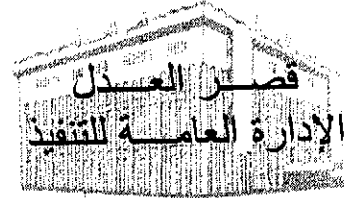 قصر العدل
الإدارة العامة للتنفيذ